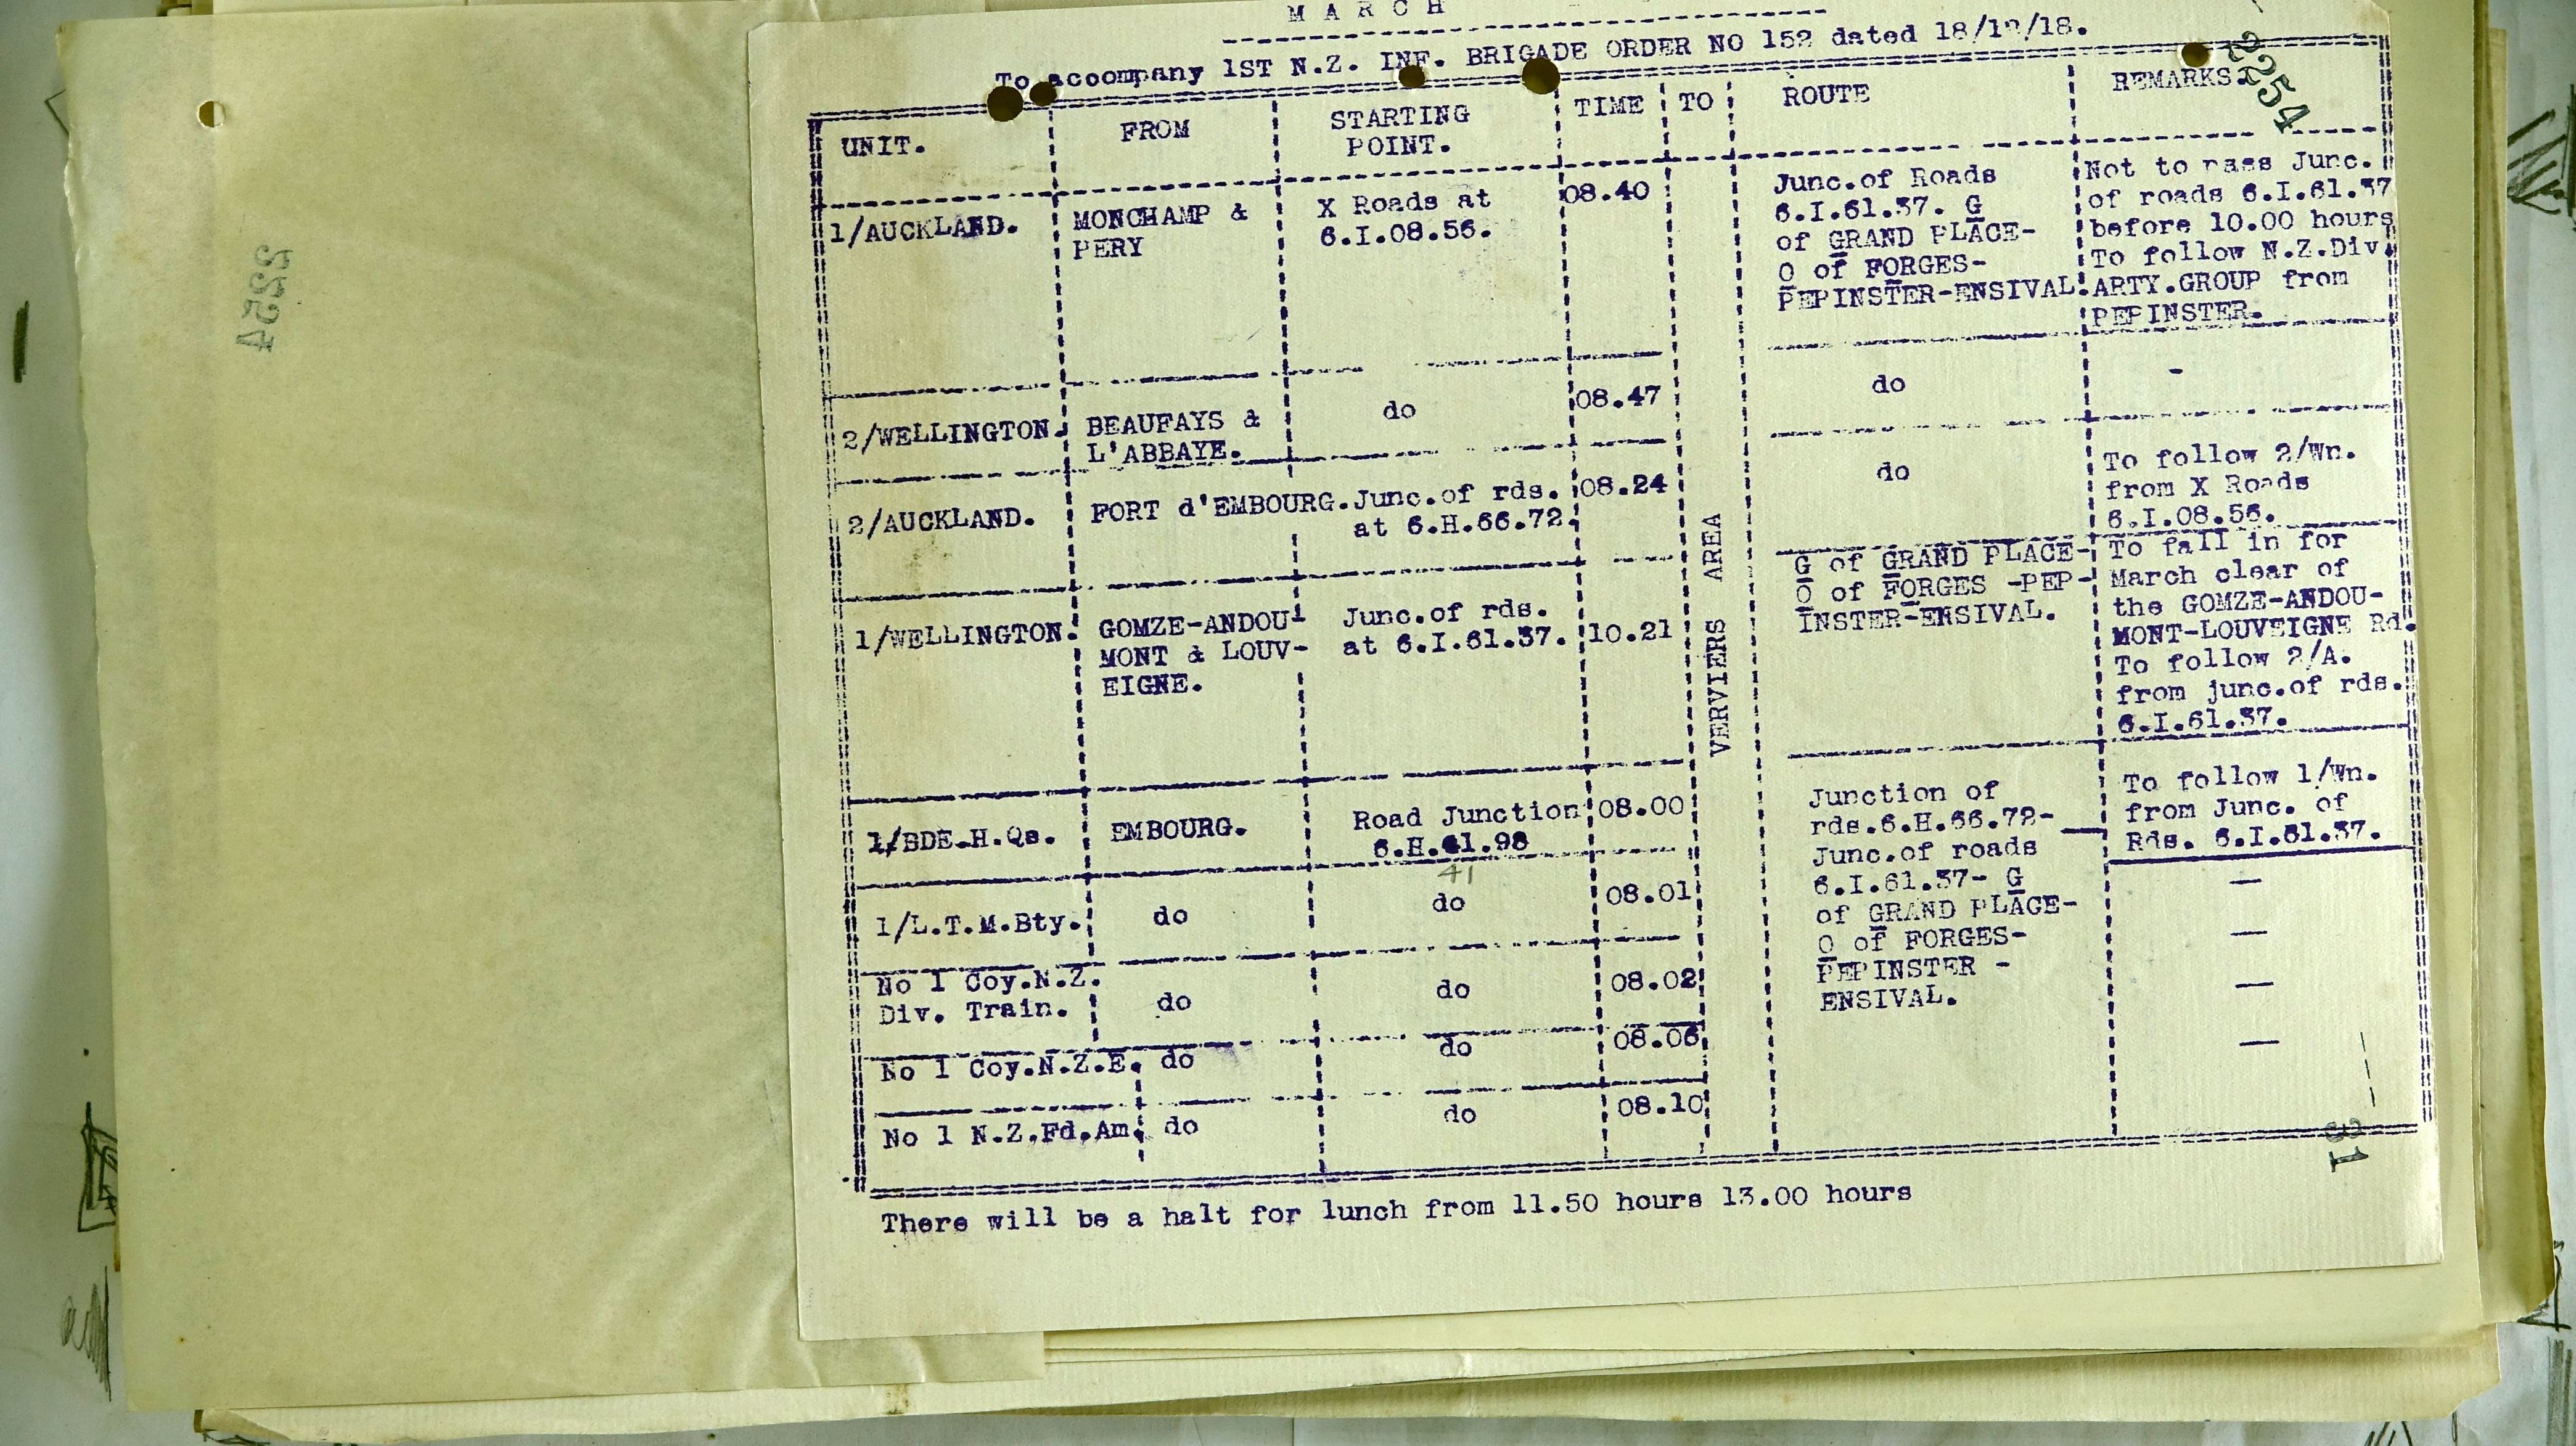 MARCH
To accompany 1ST N.Z. INF. BRIGADE ORDER NO 152 dated 18/12/18.
2254
UNIT. FROM STARTING POINT. TIME TO ROUTE REMARKS.
1/AUCKLAND.
MONCHAMP &
PERY
X Roads at
6.I.08.56.
08.40
Junc.of Roads
6.I.61.37. G
of GRAND PLACE-
O of FORGES-
PEPINSTER-ENSIVAL.
Not to pass Junc.
of roads 6.I.61.37
before 10.00 hours
To follow N.Z.Div.
ARTY.GROUP from
PEPINSTER.
2/WELLINGTON.
BEAUFAYS &
L'ABBAYE.
do
08.47
do
-
2/AUCKLAND.
FORT d'EMBOURG.
Junc.of rds.
at 6.H.66.72.
08.24
do
To follow 2/Wn.
from X Roads
6.I.08.56.
VERVIERS AREA
1/WELLINGTON.
GOMZE-ANDOU-
MONT & LOUV-
EIGNE.
Junc.of rds.
at 6.I.61.37.
10.21
G of GRAND PLACE-
O of FORGES -PEP-
INSTER-ENSIVAL.
To fall in for
March clear of
the GOMZE-ANDOU-
MONT-LOUVEIGNE Rd.
To follow 2/A.
from junc.of rds.
6.I.61.37.
1/BDE.H.Qs.
EMBOURG.
Road Junction
6.H.41.98
41
08.00
Junction of
rds.6.H.66.72-
Junc.of roads
6.I.61.37- G
of GRAND PLACE-
O of FORGES-
PEPINSTER -
ENSIVAL.
To follow 1/Wn.
from Junc. of
Rds. 6.I.61.37.
1/L.T.M.Bty. do do 08.01 —
No 1 Coy.N.Z.
Div. Train. do do 08.02 —
No 1 Coy.N.Z.E. do do 08.06 —
No 1 N.Z.Fd.Am. do do 08.10 —
31
There will be a halt for lunch from 11.50 hours 13.00 hours
2254